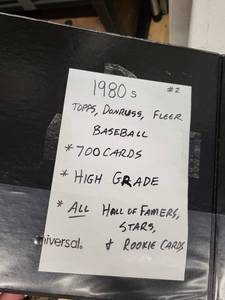 1980s #2
TOPPS, DONRUSS, FLEER
BASEBALL
* 700 CARDS
* HIGH GRADE
* ALL HALL OF FAMERS,
STARS,
& ROOKIE CARDS
niversal®